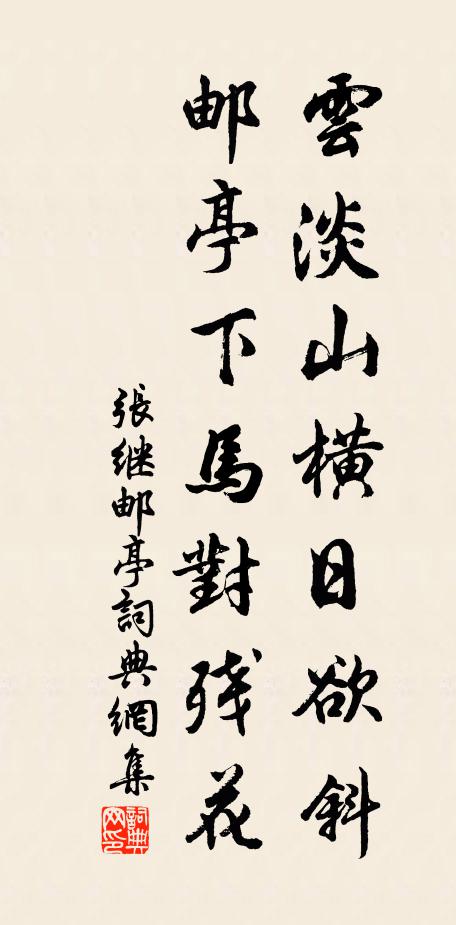 雲淡山橫日欲斜
邮亭下馬對残花
張继邮亭詞典網集
詞典网印